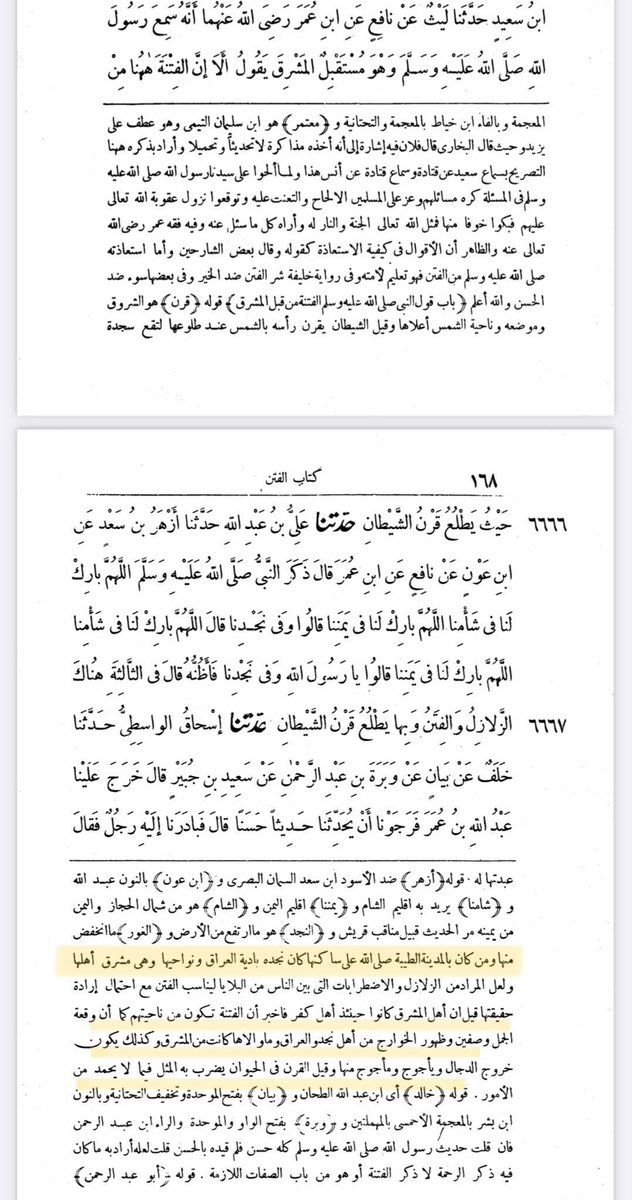 ابنُ سَعِيدٍ حَدَّثَنَا لَيْثٌ عَنْ نَافِعٍ عَنِ ابنِ عُمَرَ رَضِىَ اللهُ عَنْهُما أَنَّهُ سَمِعَ رَسُولَ
اللهِ صَلَّى اللهُ عَلَيْهِ وَسَلَّمَ وَهْوَ مُسْتَقْبِلُ المَشْرِقِ يَقُولُ أَلَا إِنَّ الفِتْنَةَ هٰهُنا مِنْ
المعجمة وبالفاء ابن خياط بالمعجمة والتحتانية و ﴿معتمر﴾ هو ابن سليمان التيمى وهو عطف على
يزيد وحيث قال البخارى قال فلان فيه إشارة إلى أنه أخذه مذاكرة لا تحديثا وتحميلا وأراد بذكره ههنا
التصريح بسماع سعيد عن قتادة وسماع قتادة عن أنس هذا ولما ألحوا على سيدنا رسول الله صلى الله عليه
وسلم فى المسئلة كره مسائلهم وعز على المسلمين الالحاح والتعنت عليه وتوقعوا نزول عقوبة الله تعالى
عليهم فبكوا خوفا منها فمثل الله تعالى الجنة والنار له وأراه كل ما سئل عنه وفيه فقه عمر رضى الله
تعالى عنه والظاهر أن الأقوال فى كيفية الاستعاذة كقوله وقال بعض الشارحين وأما استعاذته
صلى الله عليه وسلم من الفتن فهو تعليم لأمته وفى رواية خليفة شر الفتن ضد الخير وفى بعضها سوء ضد
الحسن والله أعلم ﴿باب قول النبى صلى الله عليه وسلم الفتنة من قبل المشرق﴾ قوله ﴿قرن﴾ هو الشروق
وموضعه وناحية الشمس أعلاها وقيل الشيطان يقرن رأسه بالشمس عند طلوعها لتقع سجدة
١٦٨ كتاب الفتن
٦٦٦٦ حَيْثُ يَطْلُعُ قَرْنُ الشَّيْطانِ حَدَّثَنَا عَلِىُّ بنُ عَبْدِ اللهِ حَدَّثَنَا أَزْهَرُ بنُ سَعْدٍ عَنِ
ابنِ عَوْنٍ عَنْ نافِعٍ عَنِ ابنِ عُمَرَ قالَ ذَكَرَ النَّبِىُّ صَلَّى اللهُ عَلَيْهِ وَسَلَّمَ اللّٰهُمَّ بارِكْ
لَنا فى شَأْمِنا اللّٰهُمَّ بارِكْ لَنا فى يَمَنِنا قالُوا وَفى نَجْدِنا قالَ اللّٰهُمَّ بارِكْ لَنا فى شَأْمِنا
اللّٰهُمَّ بارِكْ لَنا فى يَمَنِنا قالُوا يا رَسُولَ اللهِ وَفى نَجْدِنا فَأَظُنُّهُ قالَ فى الثَّالِثَةِ هُناكَ
٦٦٦٧ الزَّلازِلُ وَالفِتَنُ وَبِها يَطْلُعُ قَرْنُ الشَّيْطانِ حَدَّثَنَا إِسْحاقُ الواسِطِىُّ حَدَّثَنا
خَلَفٌ عَنْ بَيانٍ عَنْ وَبَرَةَ بنِ عَبْدِ الرَّحْمٰنِ عَنْ سَعِيدِ بنِ جُبَيْرٍ قالَ خَرَجَ عَلَيْنا
عَبْدُ اللهِ بنُ عُمَرَ فَرَجَوْنا أَنْ يُحَدِّثَنا حَدِيثاً حَسَنًا قالَ فَبادَرَنا إِلَيْهِ رَجُلٌ فَقالَ
عبدتها له . قوله ﴿أزهر﴾ ضد الأسود ابن سعد السمان البصرى و ﴿ابن عون﴾ بالنون عبد الله
و ﴿شامنا﴾ يريد به اقليم الشام و ﴿يمننا﴾ اقليم اليمن و ﴿الشام﴾ هو من شمال الحجاز واليمن
من يمينه مر الحديث قبيل مناقب قريش و ﴿النجد﴾ هو ما ارتفع من الأرض و ﴿الغور﴾ ما انخفض
منها ومن كان بالمدينة الطيبة صلى الله على ساكنها كان نجده بادية العراق ونواحيها وهى مشرق أهلها
ولعل المراد من الزلازل والاضطرابات التى بين الناس من البلايا ليناسب الفتن مع احتمال إرادة
حقيقتها قيل ان أهل المشرق كانوا حينئذ أهل كفر فاخبر أن الفتنة تكون من ناحيتهم كما أن وقعة
الجمل وصفين وظهور الخوارج من أهل نجد والعراق وما والاها كانت من المشرق وكذلك يكون
خروج الدجال ويأجوج ومأجوج منها وقيل القرن فى الحيوان يضرب به المثل فيما لا يحمد من
الأمور . قوله ﴿خالد﴾ أى ابن عبد الله الطحان و ﴿بيان﴾ بفتح الموحدة وتخفيف التحتانية وبالنون
ابن بشر بالمعجمة الأحمسى بالمهملتين و ﴿وبرة﴾ بفتح الواو والموحدة والراء ابن عبد الرحمن
فان قلت حديث رسول الله صلى الله عليه وسلم كله حسن فلم قيده بالحسن قلت لعله أراد به ما كان
فيه ذكر الرحمة لا ذكر الفتنة أو هو من باب الصفات اللازمة . قوله ﴿أبو عبد الرحمن﴾